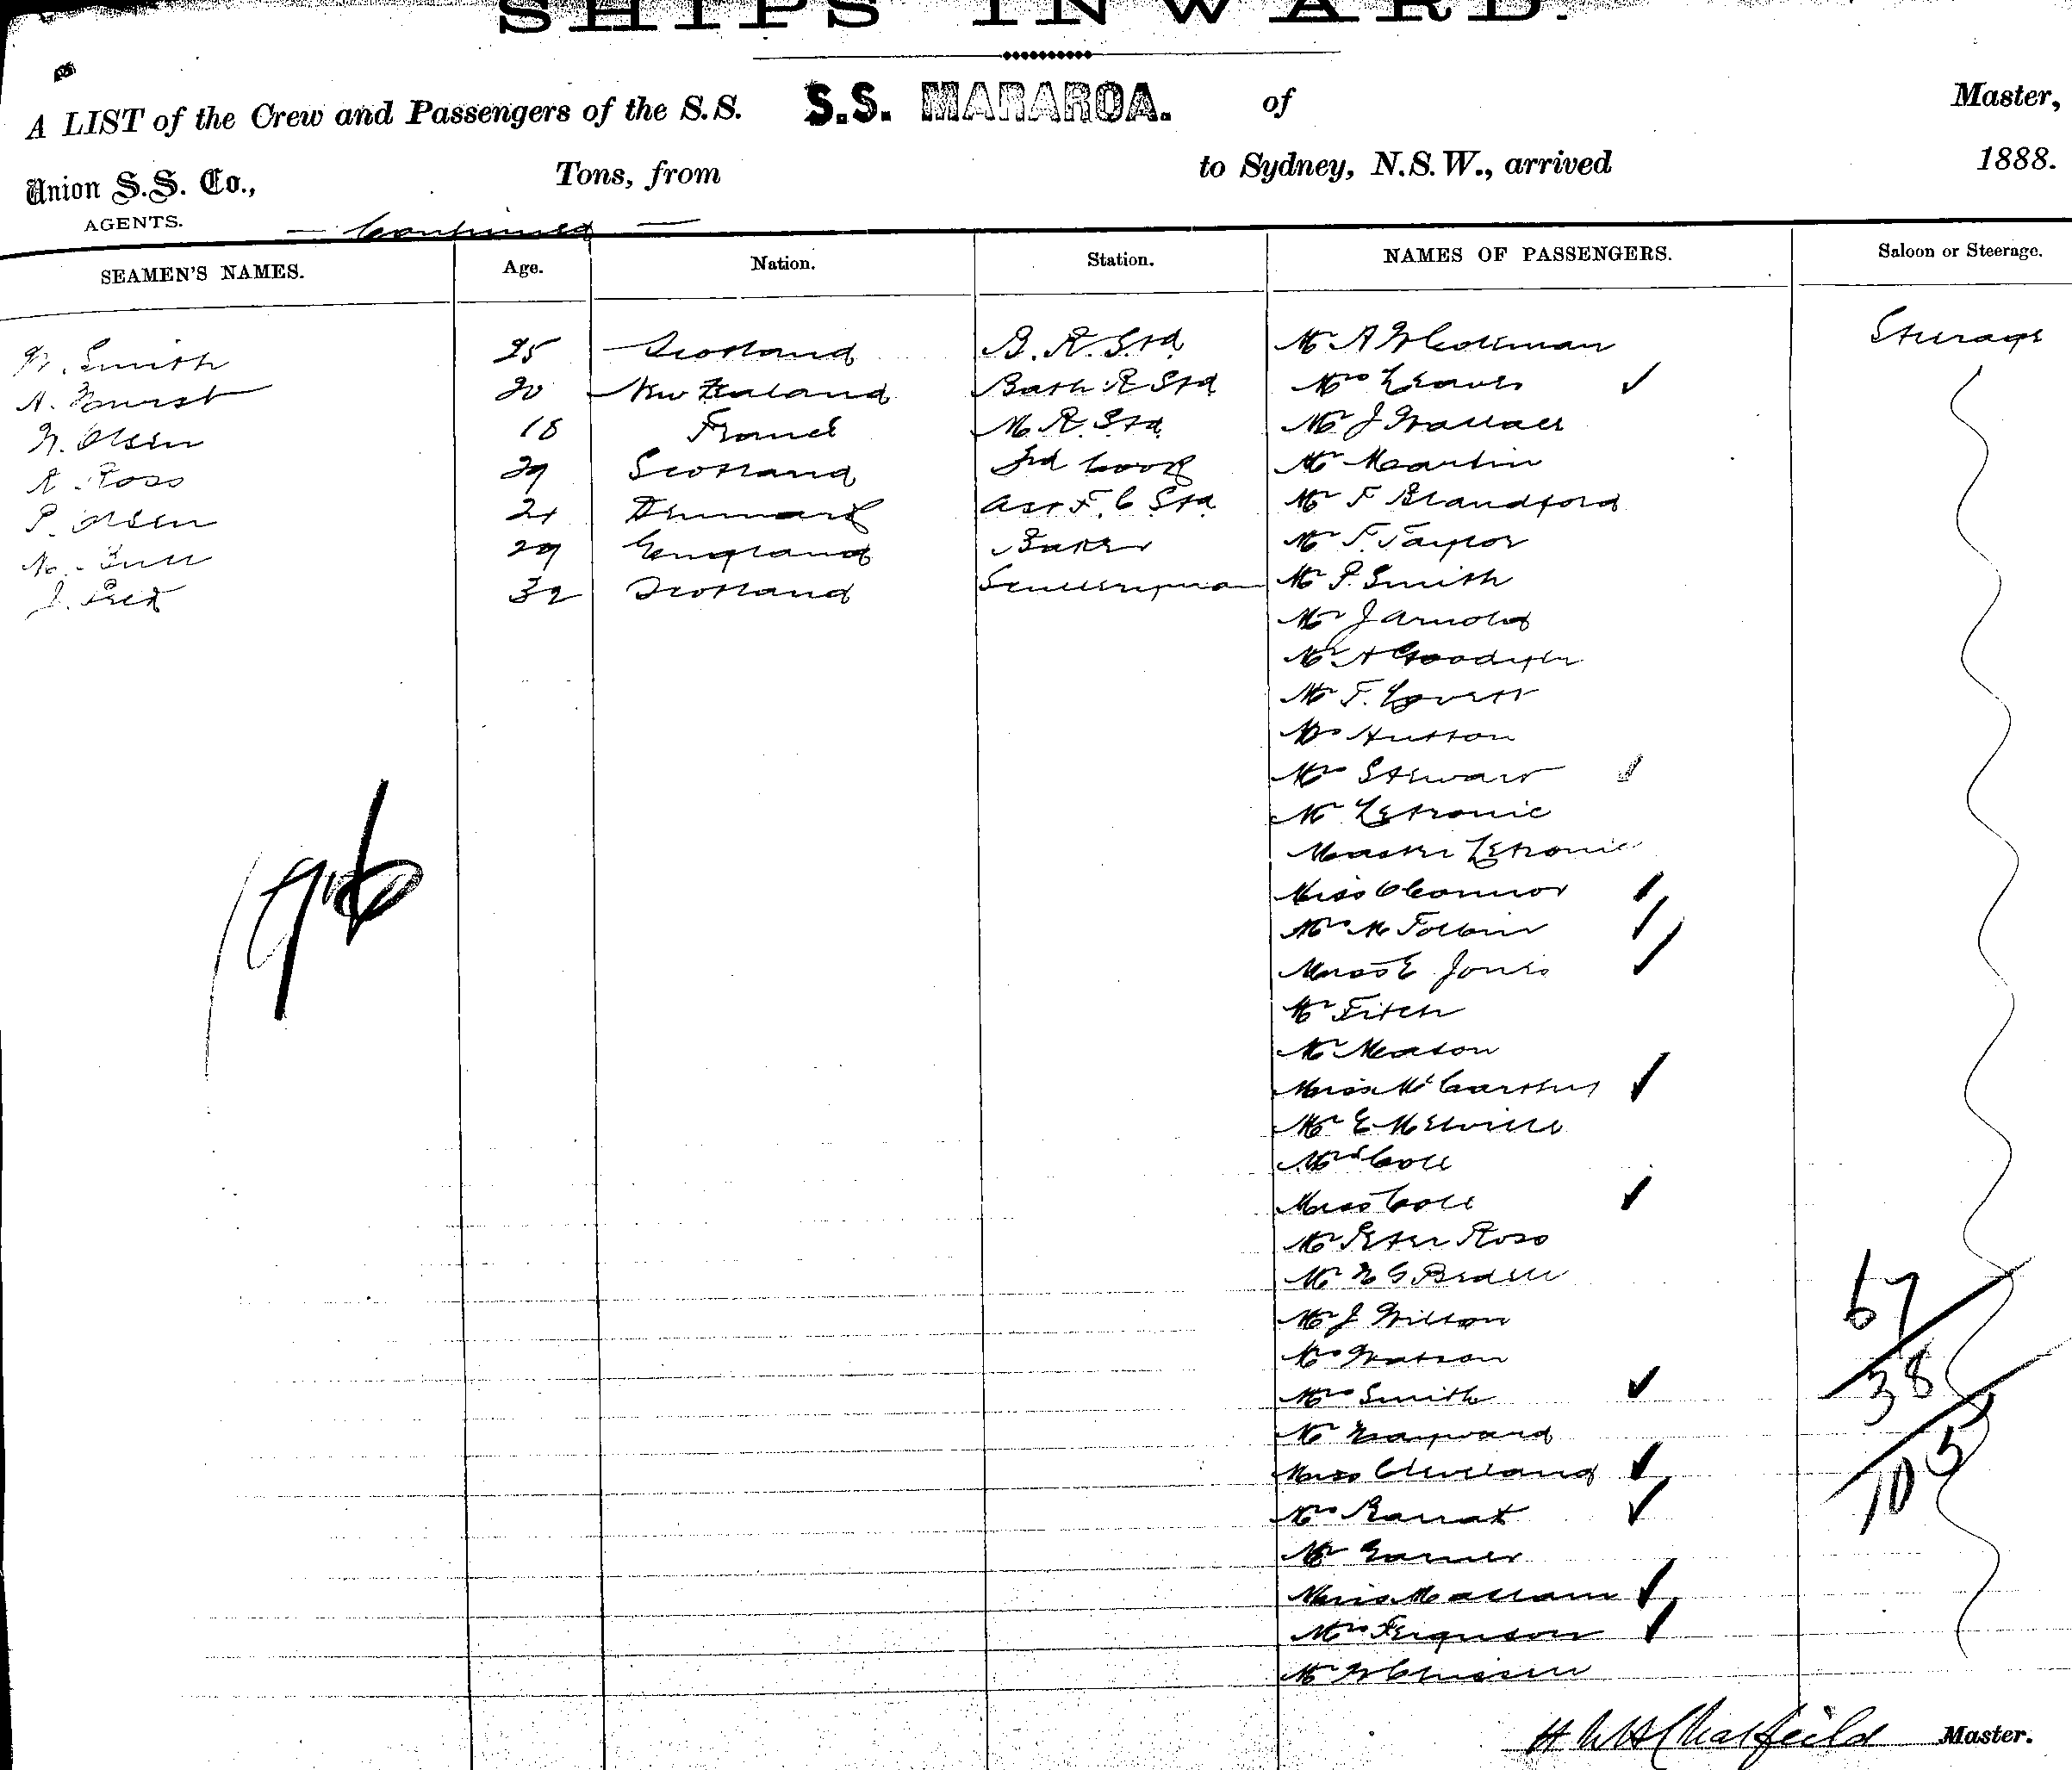 SHIPS INWARD.
A LIST of the Crew and Passengers of the S.S. S.S. MARAROA. of Master,
Union S.S. Co., Tons, from to Sydney, N.S.W., arrived 1888.
AGENTS. — Continued —
SEAMEN'S NAMES. Age. Nation. Station. NAMES OF PASSENGERS. Saloon or Steerage.
W. Smith 25 Scotland B. R. Std Mr A W Coleman Steerage
A. 20 New Zealand Bath R Std Mrs ✓
N. Olsen 18 France M. R. Std Mr J Wallace
A. Ross 29 Scotland 3rd Cook Mr Martin
P. Olsen 21 Denmark Asst F. C Std Mr F Blandford
29 England Baker Mr F. Taylor
J. 32 Scotland Sculleryman Mr P. Smith
Mr J Arnold
Mr A Goodyer
Mr F. Lovett
Hutton
Mrs Stewart ✓
Mr Letronic
Master Letronic
Miss O'Connor ✓
Mrs M ✓
Miss E Jones ✓
Mr Fitch
Mr Meaton
Miss McCarthy ✓
Mr E Melville
Cole
Miss Cole ✓
Mr Peter Ross
Mr
Mr J Wilson
Watson
Mrs Smith ✓
Mr Hayward
Miss Cleveland ✓
Mrs ✓
Mr
Miss ✓
Mrs Ferguson ✓
Mr W
67
38
105
H W H Chatfeild Master.